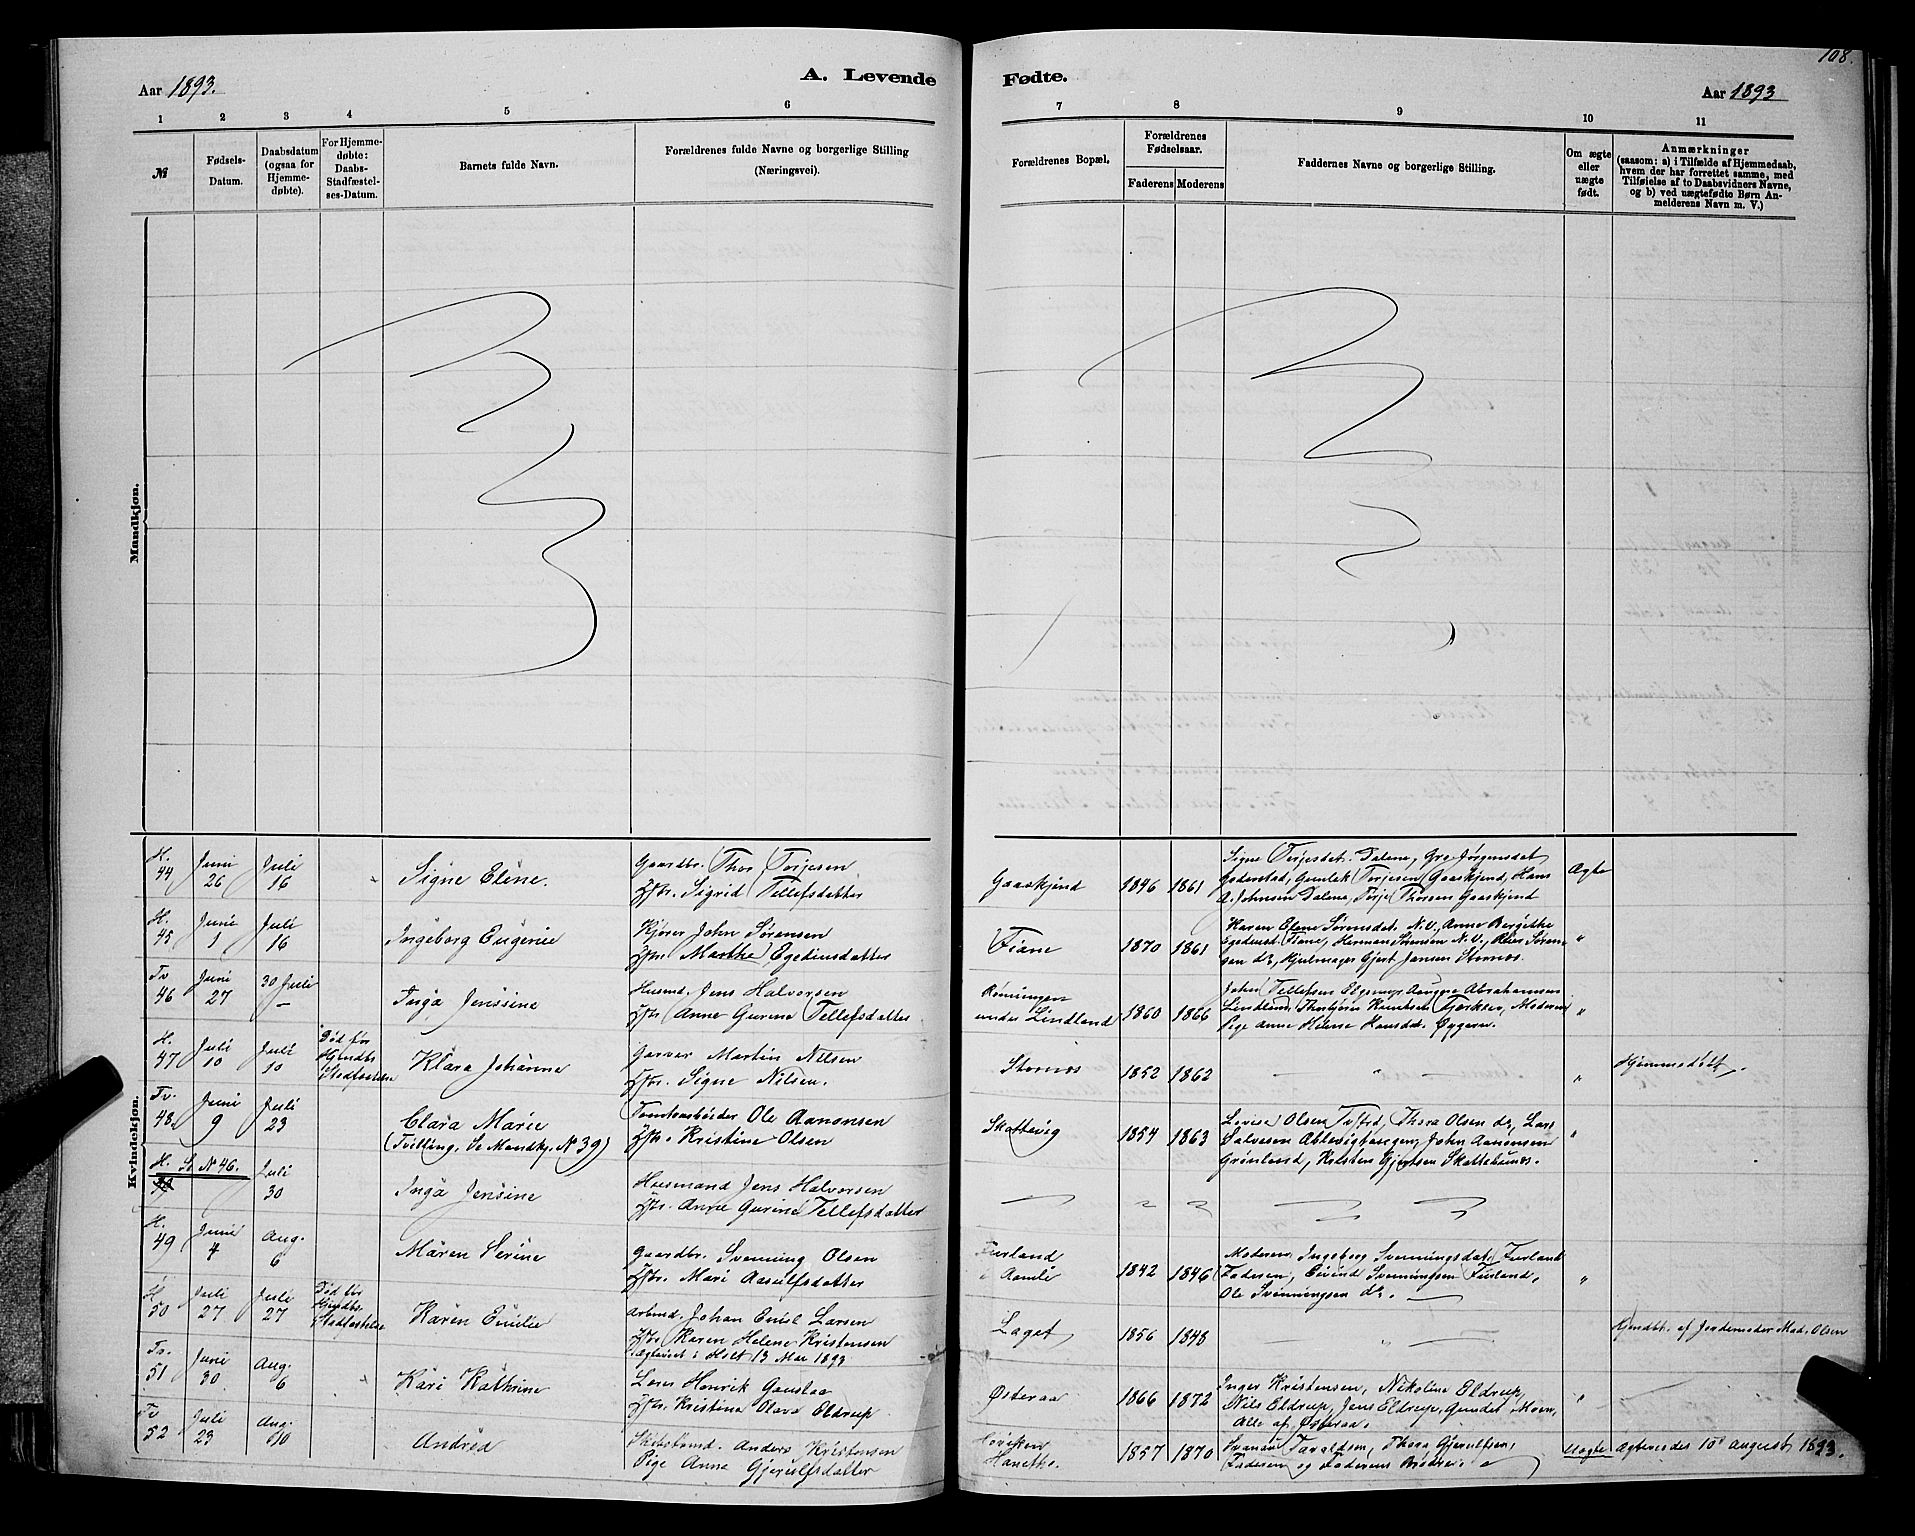 108.
Aar 1893.
A. Levende
Fødte.
Aar 1893
1 2 3 4 5 6
7 8 9 10 11
№
Fødsels-
Datum.
Daabsdatum
(ogsaa for
Hjemme-
døbte).
For Hjemme-
døbte:
Daabs-
Stadfæstel-
ses-Datum.
Barnets fulde Navn.
Forældrenes fulde Navne og borgerlige Stilling
(Næringsvei).
Forældrenes Bopæl.
Forældrenes
Fødselsaar.
Faderens
Moderens
Faddernes Navne og borgerlige Stilling.
Om ægte
eller
uægte
født.
Anmærkninger
(saasom: a) i Tilfælde af Hjemmedaab,
hvem der har forrettet samme, med
Tilføielse af to Daabsvidners Navne,
og b) ved uægtefødte Børn An-
melderens Navn m. V.)
Mandkjøn.
Kvindekjøn.
H. 44
Juni 26
Juli 16
Signe Elene.
Gaardbr. Thor Torjesen
Hstr. Sigrid Tellefsdatter
Gaaskjend
1846 1861
Signe Terjesdat. Dalene, Gro Jørgensdat
Goderstad, Gunlek Torjesen Gaaskjend, Hans
A. Johnsen Dalene, Torje Thorsen Gaaskjend
Ægte
H. 45
Juni 1
Juli 16
Ingeborg Eugenie
Kjører John Sørensen
Hstr. Marthe Egediusdatter
Fiane
1870 1861
Karen Elene Sørensdat. N.V., Anne Bergithe
Egediusd. Fiane, Herman Sørensen N.V., Peter Søren-
sen do, Hjulmager Gjert Jensen Stornes.
"
Tv 46
Juni 27
30 Juli
Inga Jenssine
Husmd. Jens Halvorsen
Hstr. Anne Gurine Tellefsdatter
Rønningen
under Lindland
1860 1866
John Tellefsen
Abrahamsen
Lindland, Thorbjørn Knudsen Moderen
Pige Anne Helene Hansdat.
"
H. 47
Juli 10
Juli 10
Død før
Hjmdbs
Stadfæstelse
Klara Johanne
Garver Martin Nilsen
Hstr. Signe Nilsen.
Stornes
1852 1862
"
"
Hjemmedøbt
Tv. 48.
Juni 9
Juli 23
Clara Marie
(Tvilling, Se Mandkj. N 39)
Tomtearbeider Ole Aanonsen
Hstr. Kristine Olsen
Skottevig
1854 1863
Lovise Olsen Tvstrd, Thora Olsen do, Lars
Salvesen John Aanonsen
Grønland, Kristen Gjertsen
"
H. Se N 46.
Juli 30
Inga Jensine
Husmand Jens Halvorsen
Hstr. Anne Gurine Tellefsdatter
H. 49
Juni 4
Aug. 6
Maren Serine
Gaardbr. Svenning Olsen
Hstr. Mari Aasulfsdatter
Furland
i Aamli
1842 1846
Moderen, Ingeborg Svenningsdat. Furland
Faderen, Eivind Svenningsen Furland,
Ole Svenningsen do.
"
H 50
Juli 27
Juli 27
Død før
Hjmdbs.
Stadfæstelse
Karen Emilie
Arbmd. Johan Emil Larsen
Hstr. Karen Helene Kristensen
Ægteviet i Holt 13 Mai 1893
Laget
1856 1848
"
Hjmdbt. af Jordemoder Mad. Olsen
Tv. 51
Juni 30
Aug. 6
Kari Kathrine
Lods Henrik Gonstaa
Hstr. Kristine Olava Eldrup
Østeraa
1866 1872
Inger Kristensen, Nikoline Eldrup,
Nils Eldrup, Jens Eldrup, Gundel Moen,
Alle af Østeraa.
"
Tv 52
Juli 23
Aug. 10
Andrea
Skibstømd. Anders Kristensen
Pige Anne Gjerulfsdatter
Hanetho.
1857 1870
Svanau Tavaldsen, Thora Gjerulfsen,
Faderen og Faderens Broder.
Uægte
Ægteviedes 10de August 1893.